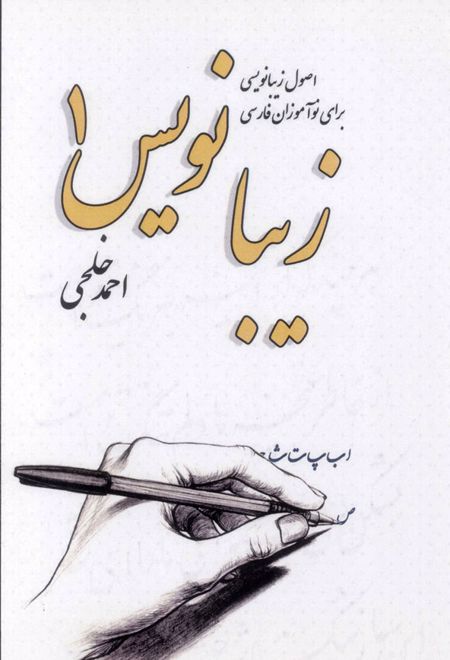 اصول زیبانویسی
برای نوآموزان فارسی
زیبا
نویس ۱
احمد خلجی
ا ب پ ت ث ج
ص